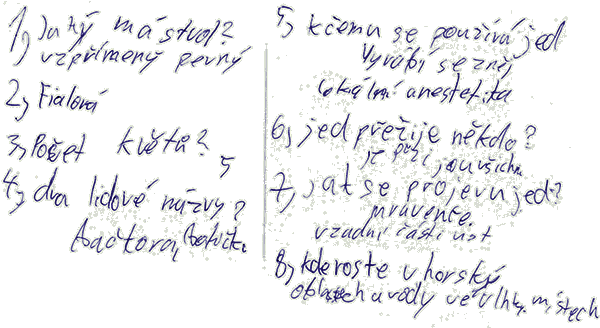 1, Jaký má stvol?
vzpřímený pevný
2, Fialová
3, Počet květů?
5
4, dva lidové názvy?
kačtora,
5, k čemu se používá jed
Vyrábí se z něj
lokální anestetika
6, jed přežije někdo?
7, jak se projevu jed?
mravenče
v zadní části úst
8, kde roste v horský
oblastech u vody ve vlhk. místech